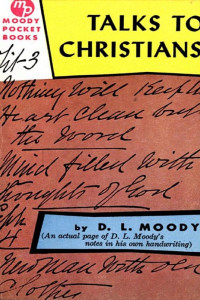 mp
MOODY
POCKET
BOOKS
TALKS TO
CHRISTIANS
Tit-3
Nothing Will Keep the
Heart Clean but
the Word
Mind filled with
thoughts of God
Eph
4
by D. L. MOODY
(An actual page of D. L. Moody's
notes in his own handwriting)
New man with old
Clothes